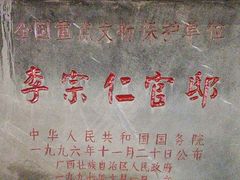 全国重点文物保护单位
李宗仁官邸
中华人民共和国国务院
一九九六年十一月二十日公布
广西壮族自治区人民政府
一九九七年